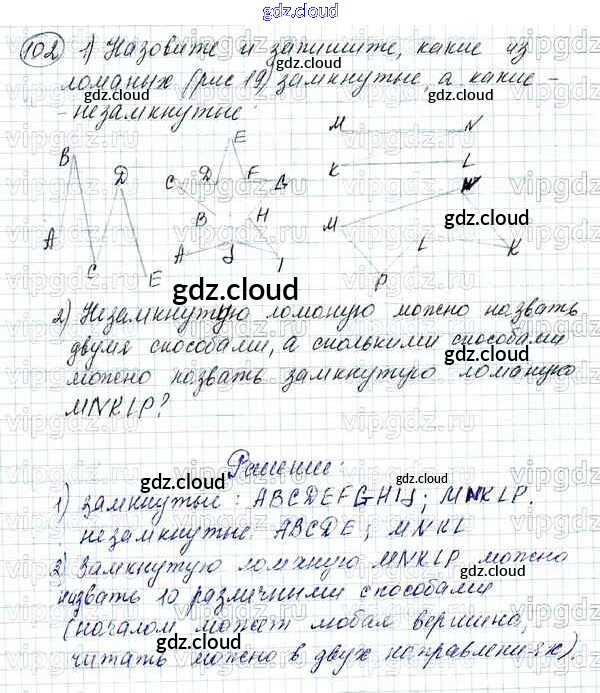 gdz.cloud
102 1) Назовите и запишите, какие из
ломаных (рис 19) замкнутые, а какие -
- незамкнутые:
B D A C E
C D E F G B H A J I
M N K L
M N L K P
2) Незамкнутую ломаную можно назвать
двумя способами, а сколькими способами
можно назвать замкнутую ломаную
MNKLP?
Решение:
1) замкнутые: ABCDEFGHIJ; MNKLP.
незамкнутые: ABCDE; MNKL
2) Замкнутую ломаную MNKLP можно
назвать 10 различными способами
(началом может любая вершина,
читать можно в двух направлениях).
gdz.cloud